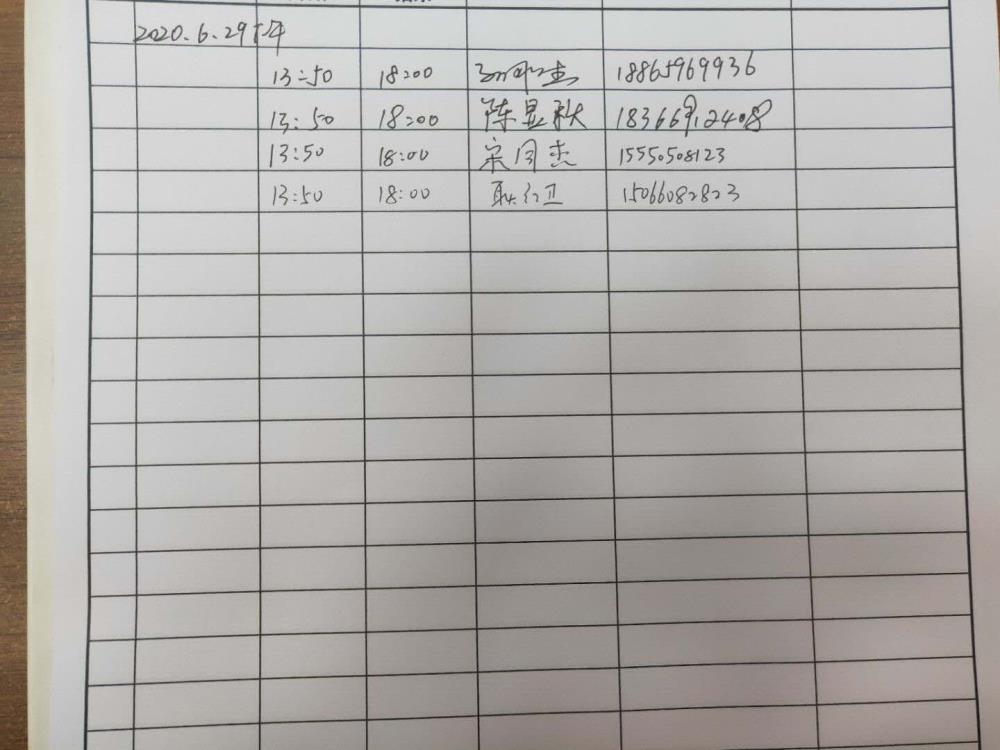 2020.6.29下午
13:50 18:00 18865969936
13:50 18:00 陈显秋 18366912408
13:50 18:00 宋同杰 15550508123
13:50 18:00 耿红卫 15066082823